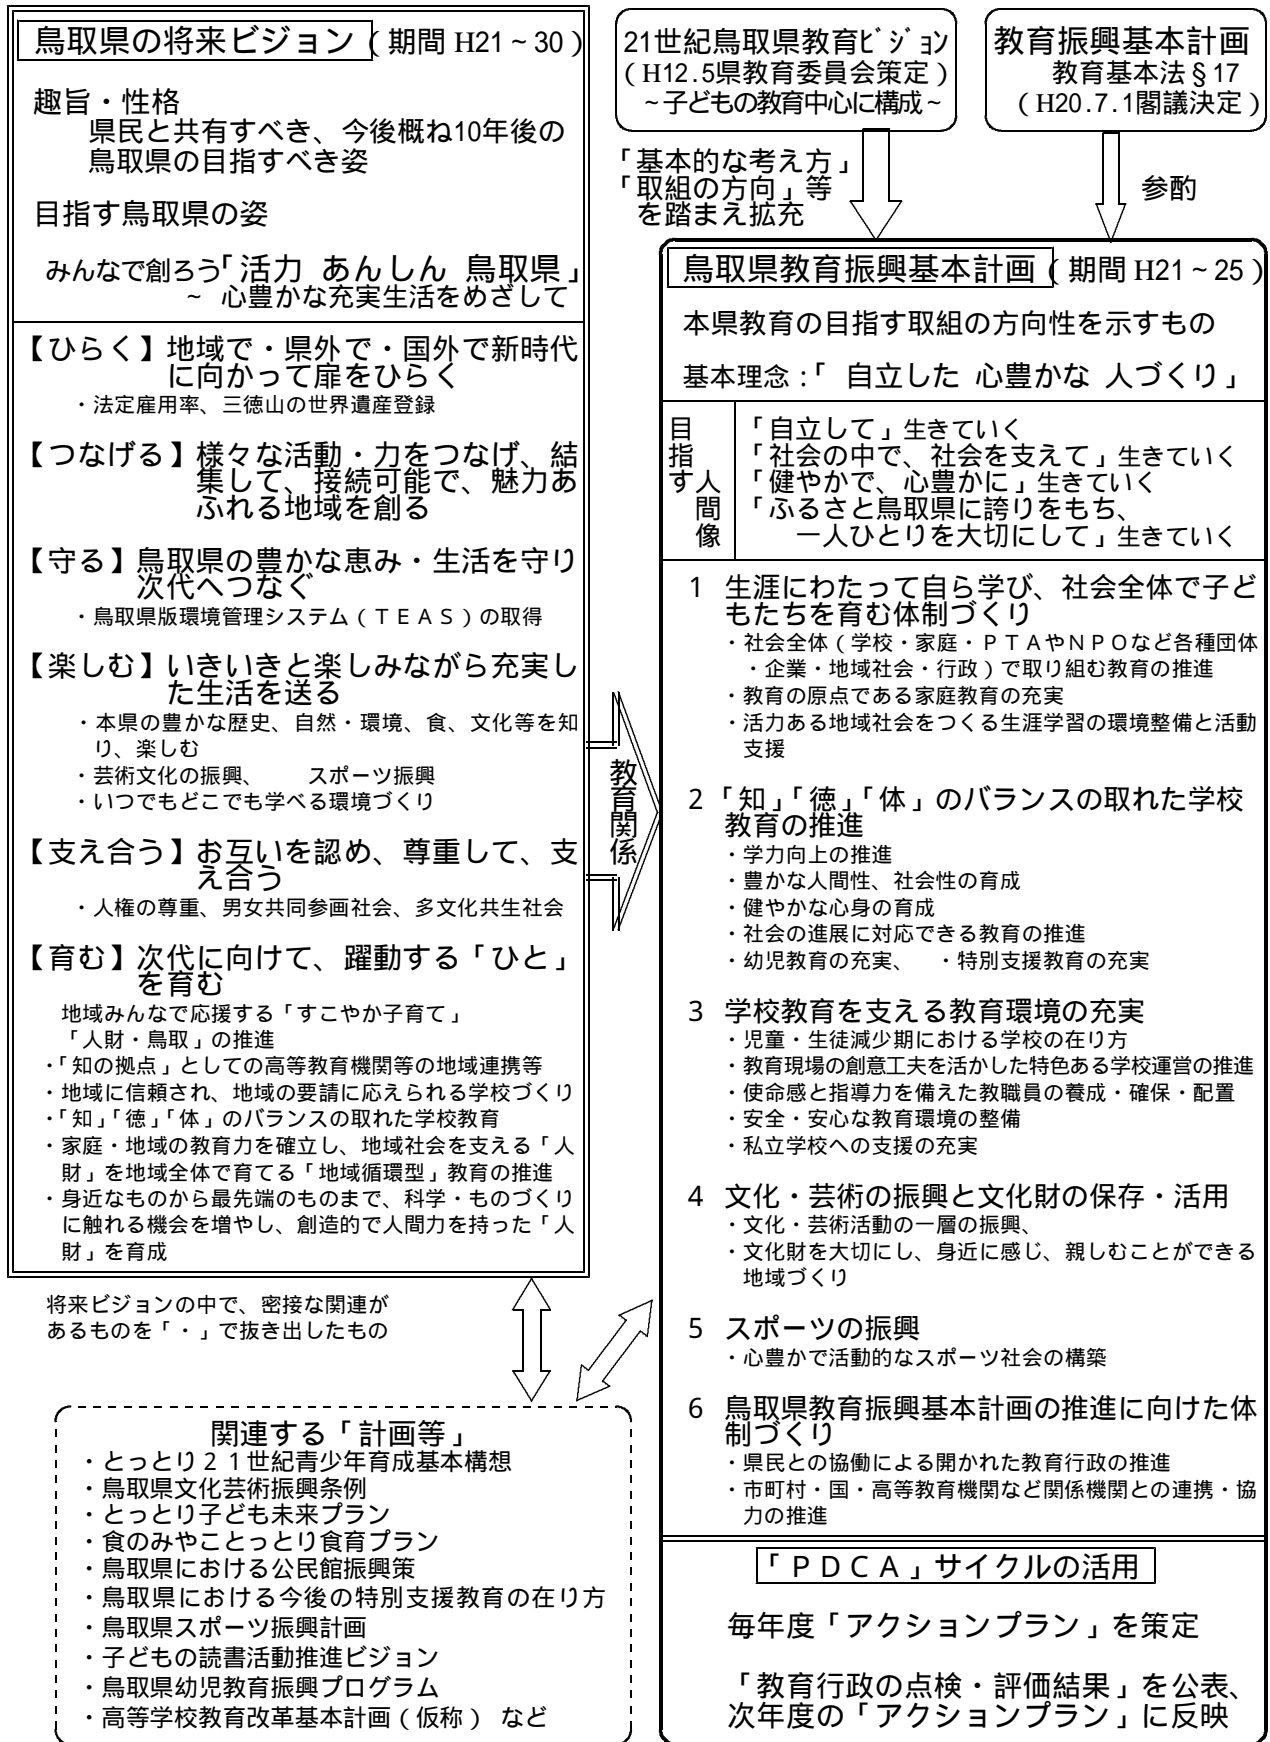 鳥取県の将来ビジョン(期間 H21~30)
趣旨・性格
県民と共有すべき、今後概ね10年後の
鳥取県の目指すべき姿
目指す鳥取県の姿
みんなで創ろう「活力 あんしん 鳥取県」
~ 心豊かな充実生活をめざして
【ひらく】地域で・県外で・国外で新時代
に向かって扉をひらく
・法定雇用率、三徳山の世界遺産登録
【つなげる】様々な活動・力をつなげ、結
集して、接続可能で、魅力あ
ふれる地域を創る
【守る】鳥取県の豊かな恵み・生活を守り
次代へつなぐ
・鳥取県版環境管理システム(TEAS)の取得
【楽しむ】いきいきと楽しみながら充実し
た生活を送る
・本県の豊かな歴史、自然・環境、食、文化等を知
り、楽しむ
・芸術文化の振興、 スポーツ振興
・いつでもどこでも学べる環境づくり
【支え合う】お互いを認め、尊重して、支
え合う
・人権の尊重、男女共同参画社会、多文化共生社会
【育む】次代に向けて、躍動する「ひと」
を育む
地域みんなで応援する「すこやか子育て」
「人財・鳥取」の推進
・「知の拠点」としての高等教育機関等の地域連携等
・地域に信頼され、地域の要請に応えられる学校づくり
・「知」「徳」「体」のバランスの取れた学校教育
・家庭・地域の教育力を確立し、地域社会を支える「人
財」を地域全体で育てる「地域循環型」教育の推進
・身近なものから最先端のものまで、科学・ものづくり
に触れる機会を増やし、創造的で人間力を持った「人
財」を育成
将来ビジョンの中で、密接な関連が
あるものを「・」で抜き出したもの
関連する「計画等」
・とっとり21世紀青少年育成基本構想
・鳥取県文化芸術振興条例
・とっとり子ども未来プラン
・食のみやことっとり食育プラン
・鳥取県における公民館振興策
・鳥取県における今後の特別支援教育の在り方
・鳥取県スポーツ振興計画
・子どもの読書活動推進ビジョン
・鳥取県幼児教育振興プログラム
・高等学校教育改革基本計画(仮称) など
教育関係
21世紀鳥取県教育ビジョン
(H12.5県教育委員会策定)
~子どもの教育中心に構成~
「基本的な考え方」
「取組の方向」等
を踏まえ拡充
教育振興基本計画
教育基本法§17
(H20.7.1閣議決定)
参酌
鳥取県教育振興基本計画(期間 H21~25)
本県教育の目指す取組の方向性を示すもの
基本理念:「 自立した 心豊かな 人づくり」
目指す人間像
「自立して」生きていく
「社会の中で、社会を支えて」生きていく
「健やかで、心豊かに」生きていく
「ふるさと鳥取県に誇りをもち、
一人ひとりを大切にして」生きていく
1 生涯にわたって自ら学び、社会全体で子ど
もたちを育む体制づくり
・社会全体(学校・家庭・PTAやNPOなど各種団体
・企業・地域社会・行政)で取り組む教育の推進
・教育の原点である家庭教育の充実
・活力ある地域社会をつくる生涯学習の環境整備と活動
支援
2「知」「徳」「体」のバランスの取れた学校
教育の推進
・学力向上の推進
・豊かな人間性、社会性の育成
・健やかな心身の育成
・社会の進展に対応できる教育の推進
・幼児教育の充実、 ・特別支援教育の充実
3 学校教育を支える教育環境の充実
・児童・生徒減少期における学校の在り方
・教育現場の創意工夫を活かした特色ある学校運営の推進
・使命感と指導力を備えた教職員の養成・確保・配置
・安全・安心な教育環境の整備
・私立学校への支援の充実
4 文化・芸術の振興と文化財の保存・活用
・文化・芸術活動の一層の振興、
・文化財を大切にし、身近に感じ、親しむことができる
地域づくり
5 スポーツの振興
・心豊かで活動的なスポーツ社会の構築
6 鳥取県教育振興基本計画の推進に向けた体
制づくり
・県民との協働による開かれた教育行政の推進
・市町村・国・高等教育機関など関係機関との連携・協
力の推進
「PDCA」サイクルの活用
毎年度「アクションプラン」を策定
「教育行政の点検・評価結果」を公表、
次年度の「アクションプラン」に反映